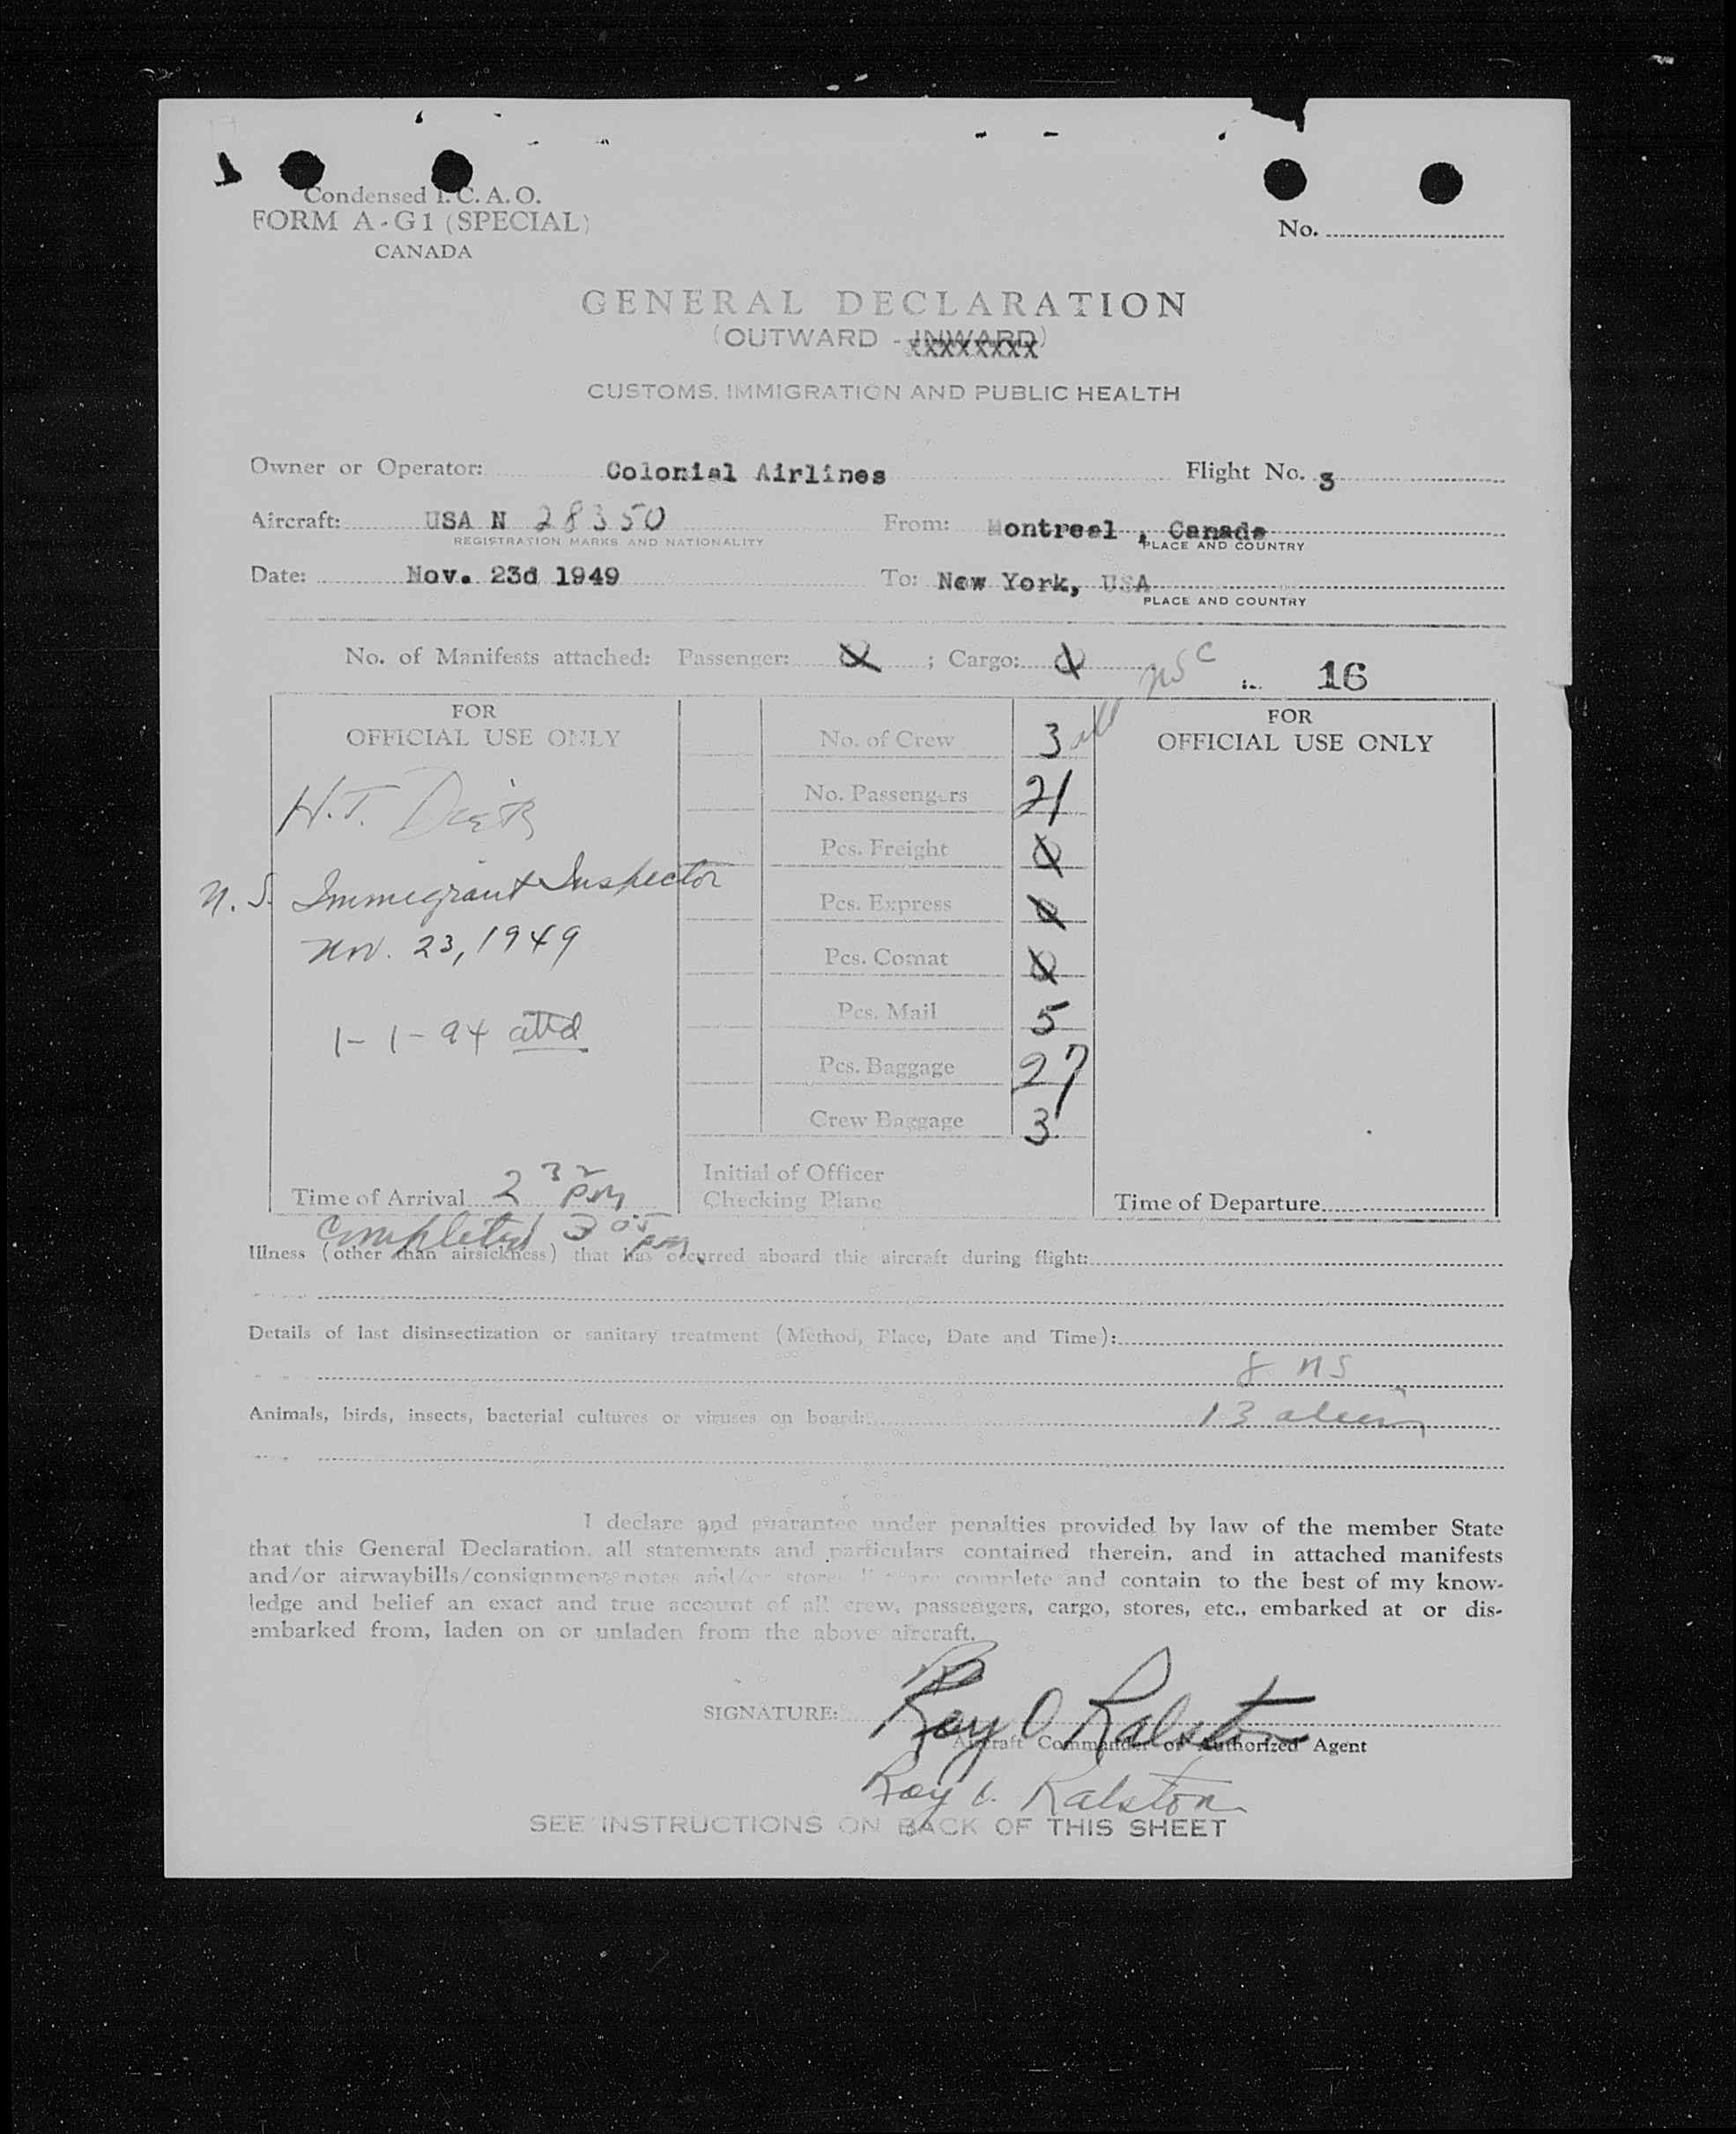 Condensed I. C. A. O.
FORM A-G1 (SPECIAL)
CANADA
No.
GENERAL DECLARATION
(OUTWARD - INWARD)
CUSTOMS, IMMIGRATION AND PUBLIC HEALTH
Owner or Operator: Colonial Airlines Flight No. 3
Aircraft: USA N 28350 From: Montreal , Canada
REGISTRATION MARKS AND NATIONALITY PLACE AND COUNTRY
Date: Nov. 23d 1949 To: New York, USA
PLACE AND COUNTRY
No. of Manifests attached: Passenger: 0 ; Cargo: 0
16
FOR
OFFICIAL USE ONLY
H.T.
Immigrant Inspector
Nov. 23, 1949
1-1-94 attd
Time of Arrival 2 32 pm
completed 3 05 pm
No. of Crew 3 all
No. Passengers 21
Pcs. Freight 0
Pcs. Express 0
Pcs. Comat 0
Pcs. Mail 5
Pcs. Baggage 27
Crew Baggage 3
Initial of Officer
Checking Plane
FOR
OFFICIAL USE ONLY
Time of Departure
Illness (other than airsickness) that has occurred aboard this aircraft during flight:
Details of last disinsectization or sanitary treatment (Method, Place, Date and Time):
8 NS
Animals, birds, insects, bacterial cultures or viruses on board: 13 aliens
I declare and guarantee under penalties provided by law of the member State
that this General Declaration, all statements and particulars contained therein, and in attached manifests
and/or airwaybills/consignment notes and/or stores list are complete and contain to the best of my know-
ledge and belief an exact and true account of all crew, passengers, cargo, stores, etc., embarked at or dis-
embarked from, laden on or unladen from the above aircraft.
SIGNATURE: Roy O Ralston
Aircraft Commander or Authorized Agent
Roy O. Ralston
SEE INSTRUCTIONS ON BACK OF THIS SHEET